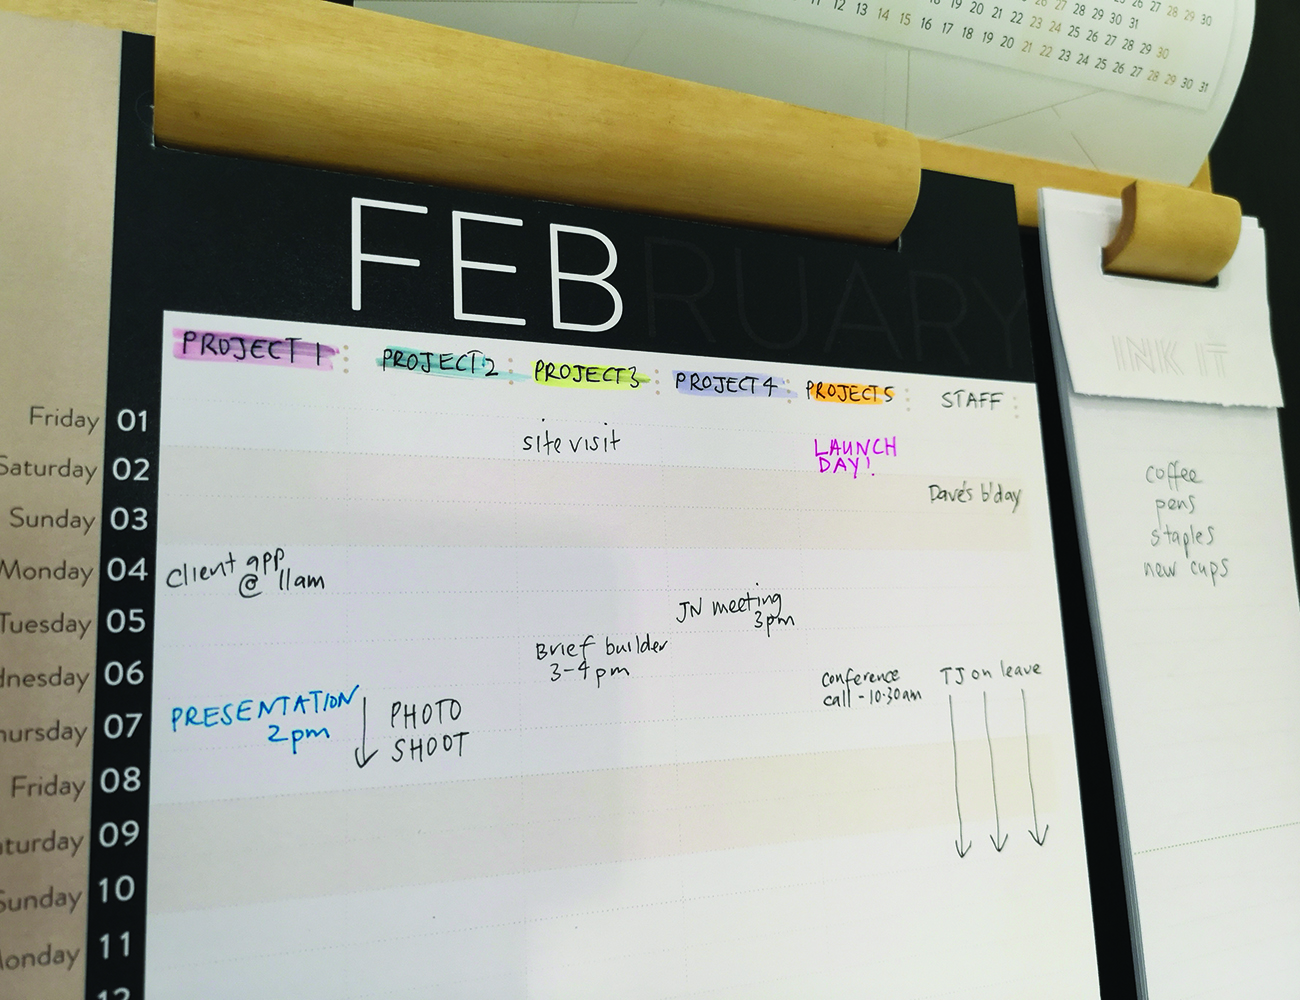 25 26 27 28 29 30
26 27 28 29 30 31
11 12 13 14 15 16 17 18 19 20 21 22 23 24 25 26 27 28 29 30
18 19 20 21 22 23 24 25 26 27 28 29 30 31
FEBRUARY
INK IT
PROJECT 1 PROJECT 2 PROJECT 3 PROJECT 4 PROJECT 5 STAFF
Friday 01 site visit LAUNCH
DAY!
Saturday 02 Dave's b'day
Sunday 03
Monday 04 Client app
@ 11am
Tuesday 05 JN meeting
3pm
dnesday 06 Brief builder
3-4pm
conference
call - 10:30am
TJ on leave
hursday 07 PRESENTATION
2pm
PHOTO
SHOOT
Friday 08
aturday 09
Sunday 10
Monday 11
12
coffee
pens
staples
new cups